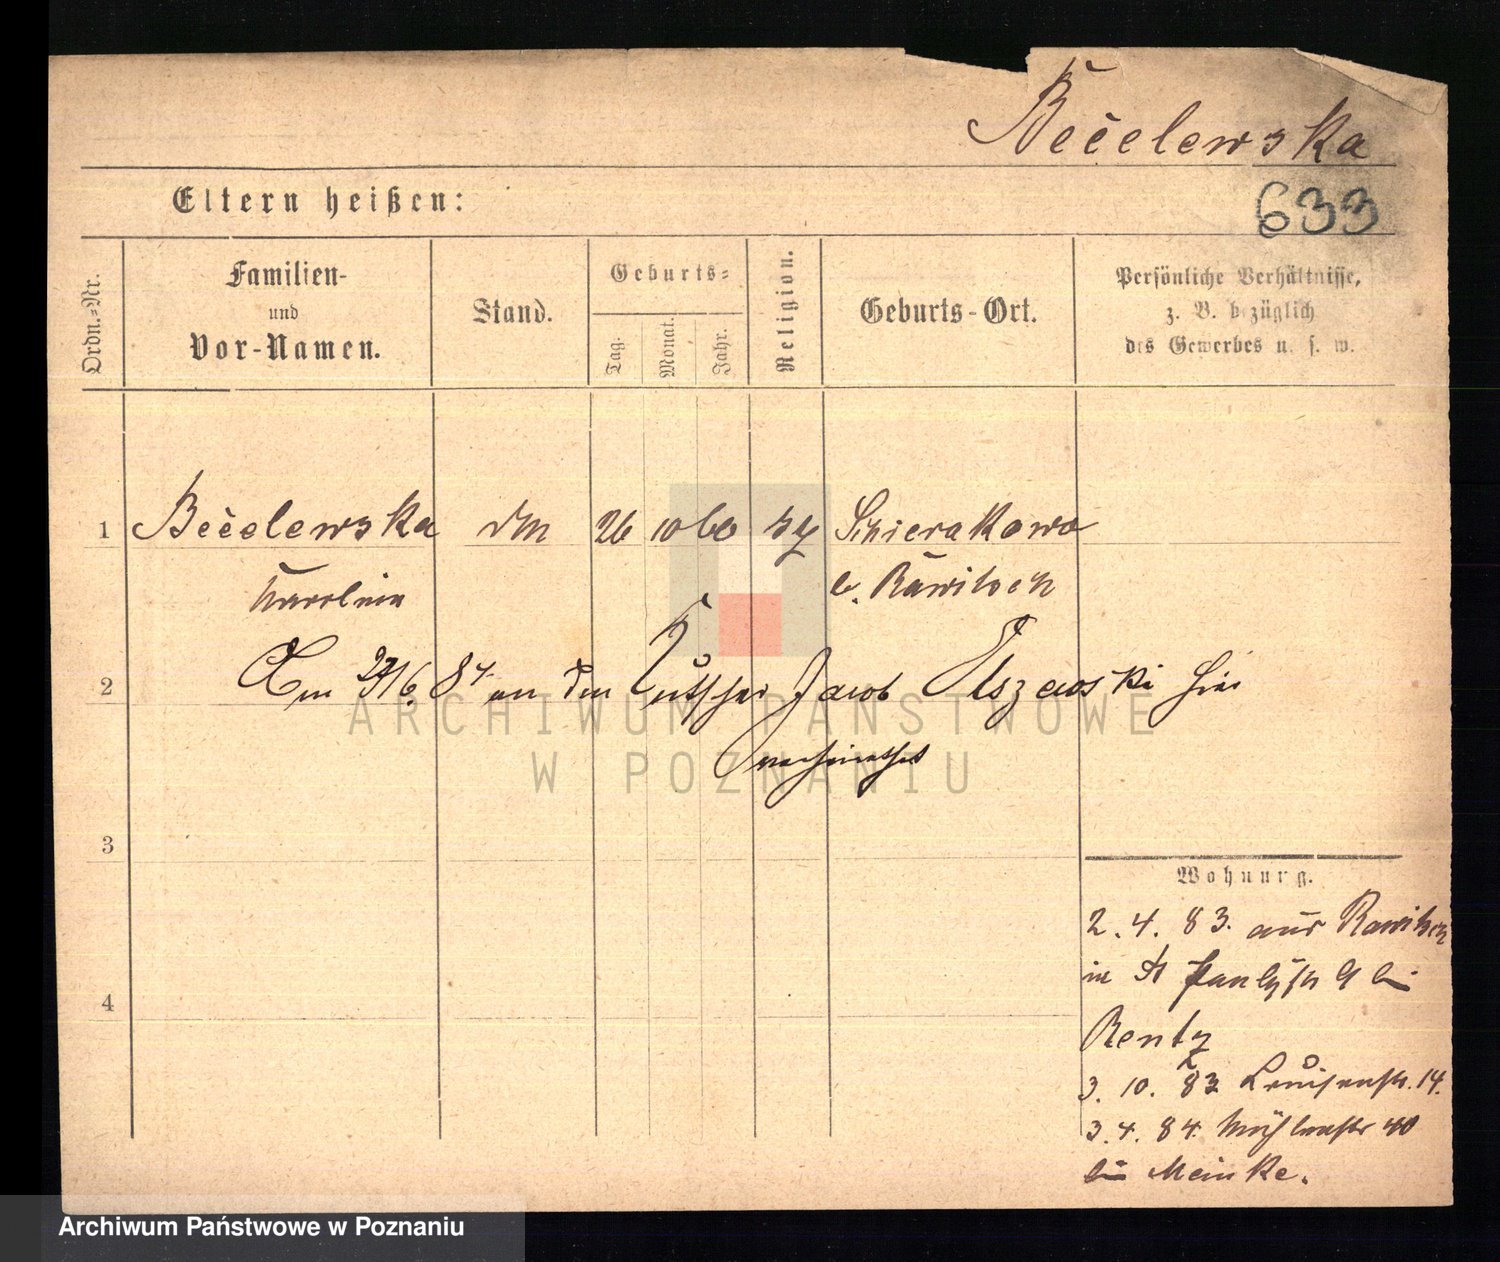 Bečelewska
Eltern heißen:
633
Ordn.-Nr.
Familien-
und
Vor-Namen.
Stand.
Geburts-
Tag.
Monat.
Jahr.
Religion.
Geburts-Ort.
Persönliche Verhältnisse,
z. B. bezüglich
des Gewerbes u. s. w.
1 Bečelewska 26 10 60 Schierakowo
Karolina b. Rawitsch
2 Am 23/6. 84 an den Kutscher Jacob hier
verheirathet
ARCHIWUM PAŃSTWOWE
W POZNANIU
3
Wohnung.
2. 4. 83. aus Rawitsch
in St 9 bei
4
Rentz
3. 10. 83 Louisenstr. 14.
3. 4. 84. Mühlenstr 40
bei Meinke.
Archiwum Państwowe w Poznaniu